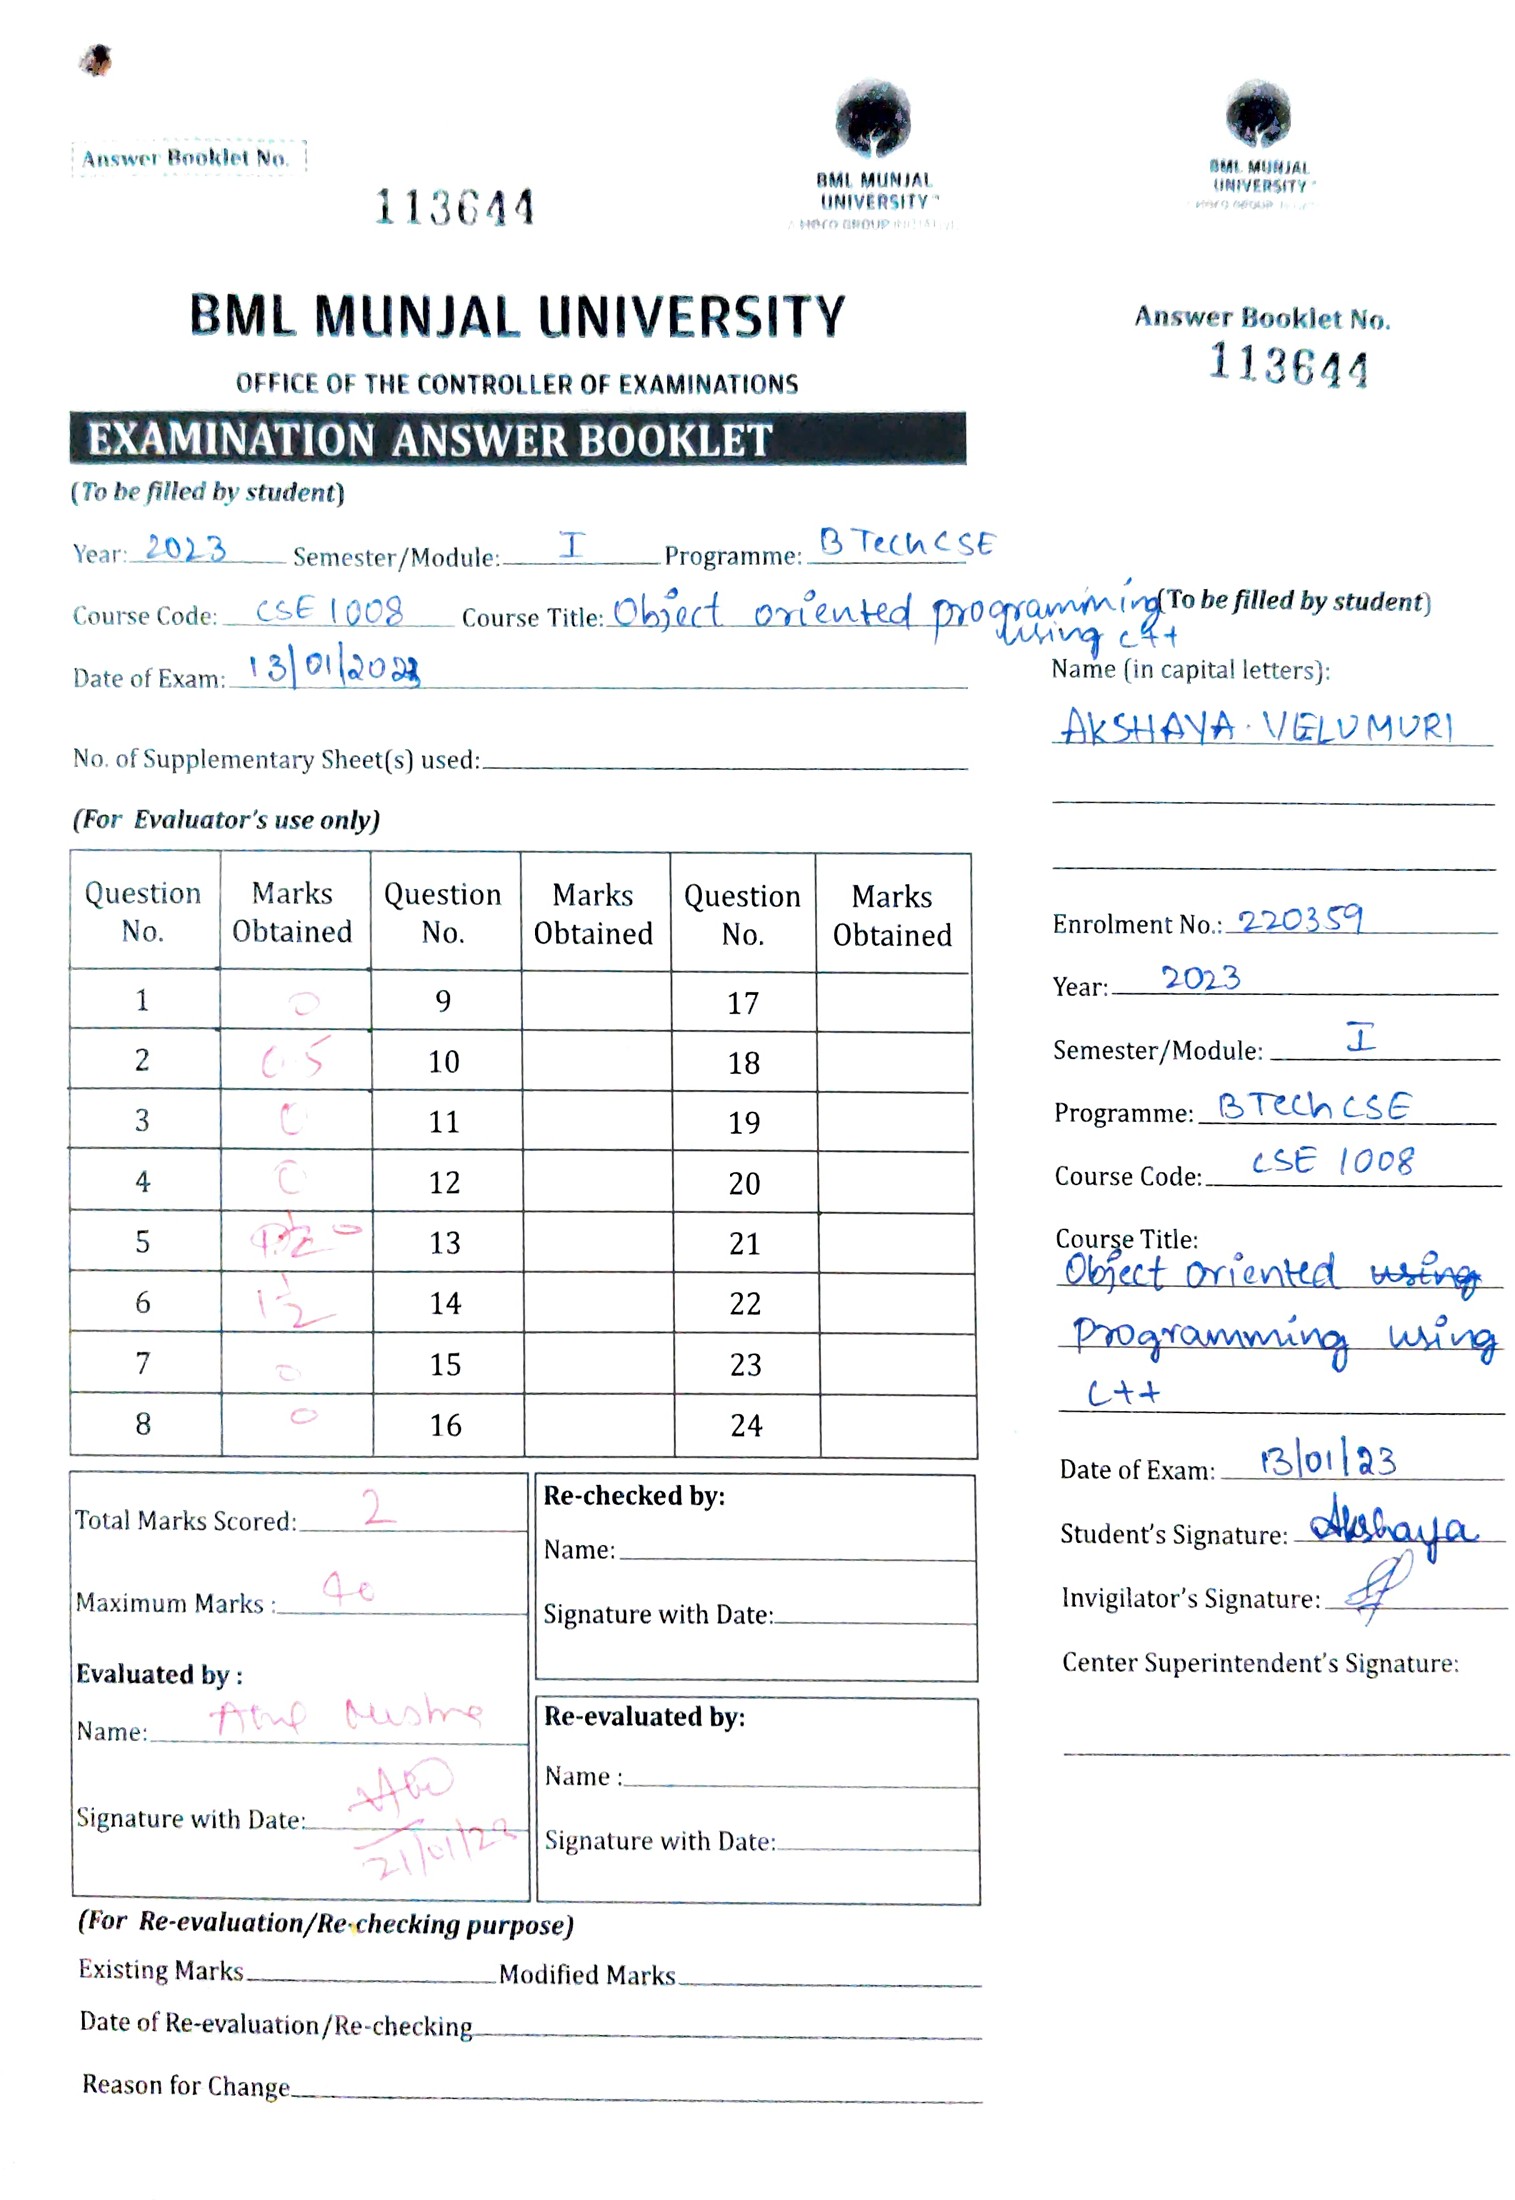 Answer Booklet No.
113644
BML MUNJAL
UNIVERSITY
A HERO GROUP INITIATIVE
BML MUNJAL
UNIVERSITY
BML MUNJAL UNIVERSITY
OFFICE OF THE CONTROLLER OF EXAMINATIONS
EXAMINATION ANSWER BOOKLET
(To be filled by student)
Year: 2023 Semester/Module: I Programme: B Tech CSE
Course Code: CSE 1008 Course Title: Object oriented programming
using C++
Date of Exam: 13/01/2023
No. of Supplementary Sheet(s) used:
(For Evaluator's use only)
Question No. Marks Obtained Question No. Marks Obtained Question No. Marks Obtained
1 0 9 17
2 0.5 10 18
3 0 11 19
4 0 12 20
5 0 13 21
6 1½ 14 22
7 0 15 23
8 0 16 24
Total Marks Scored: 2
Maximum Marks : 40
Evaluated by :
Name:
Signature with Date: 21/01/23
Re-checked by:
Name:
Signature with Date:
Re-evaluated by:
Name :
Signature with Date:
(For Re-evaluation/Re-checking purpose)
Existing Marks Modified Marks
Date of Re-evaluation/Re-checking
Reason for Change
Answer Booklet No.
113644
(To be filled by student)
Name (in capital letters):
AKSHAYA. VELUMURI
Enrolment No.: 220359
Year: 2023
Semester/Module: I
Programme: B Tech CSE
Course Code: CSE 1008
Course Title:
Object oriented using
programming using
C++
Date of Exam: 13/01/23
Student's Signature: Akshaya
Invigilator's Signature:
Center Superintendent's Signature: